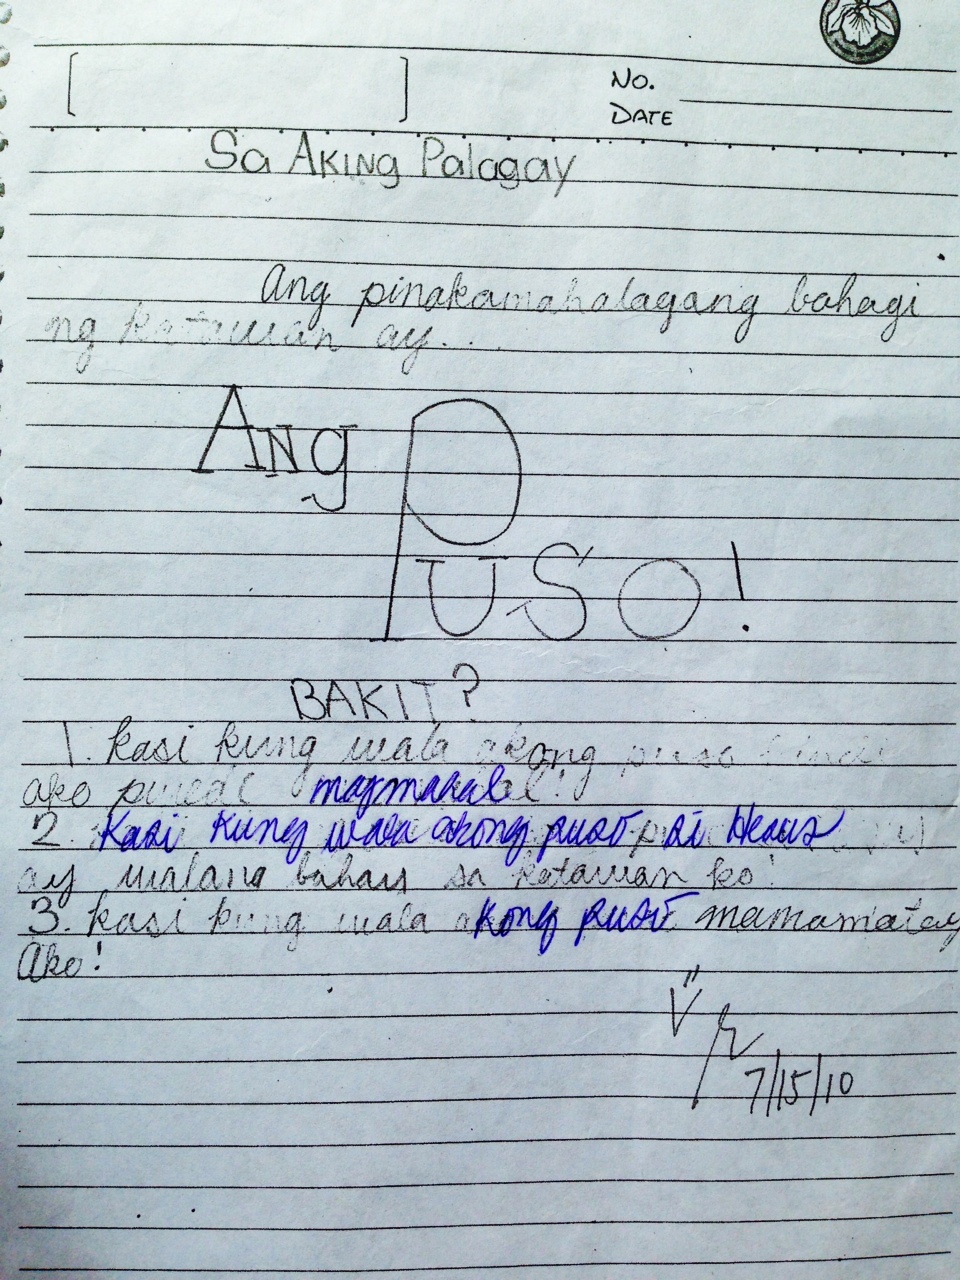 No.
DATE
Sa AKING Palagay
Ang pinakamahalagang bahagi
ng katawan ay...
ANg PUSO!
BAKIT?
1. kasi kung wala akong puso hindi
ako puede magmahal!
2. Kasi kung wala akong puso si Hesus
ay walang bahay sa katawan ko!
3. kasi kung wala akong puso mamamatay
Ako!
7/15/10